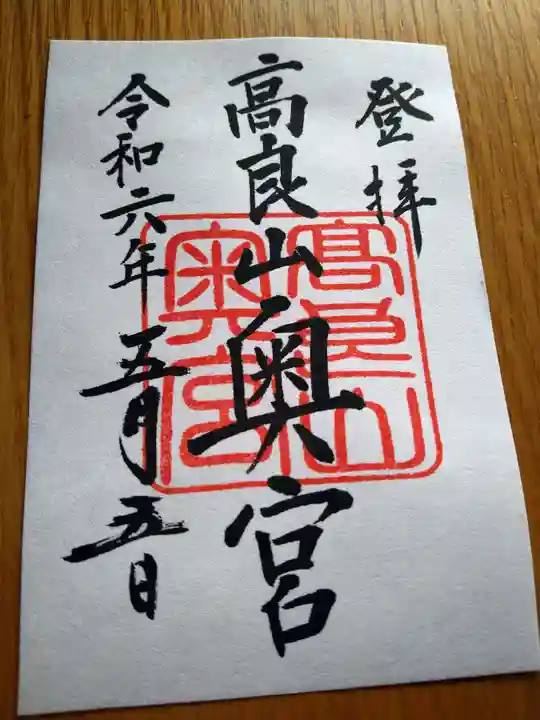 登拝
高良山奥宮
高良山
奥宮
令和六年五月五日